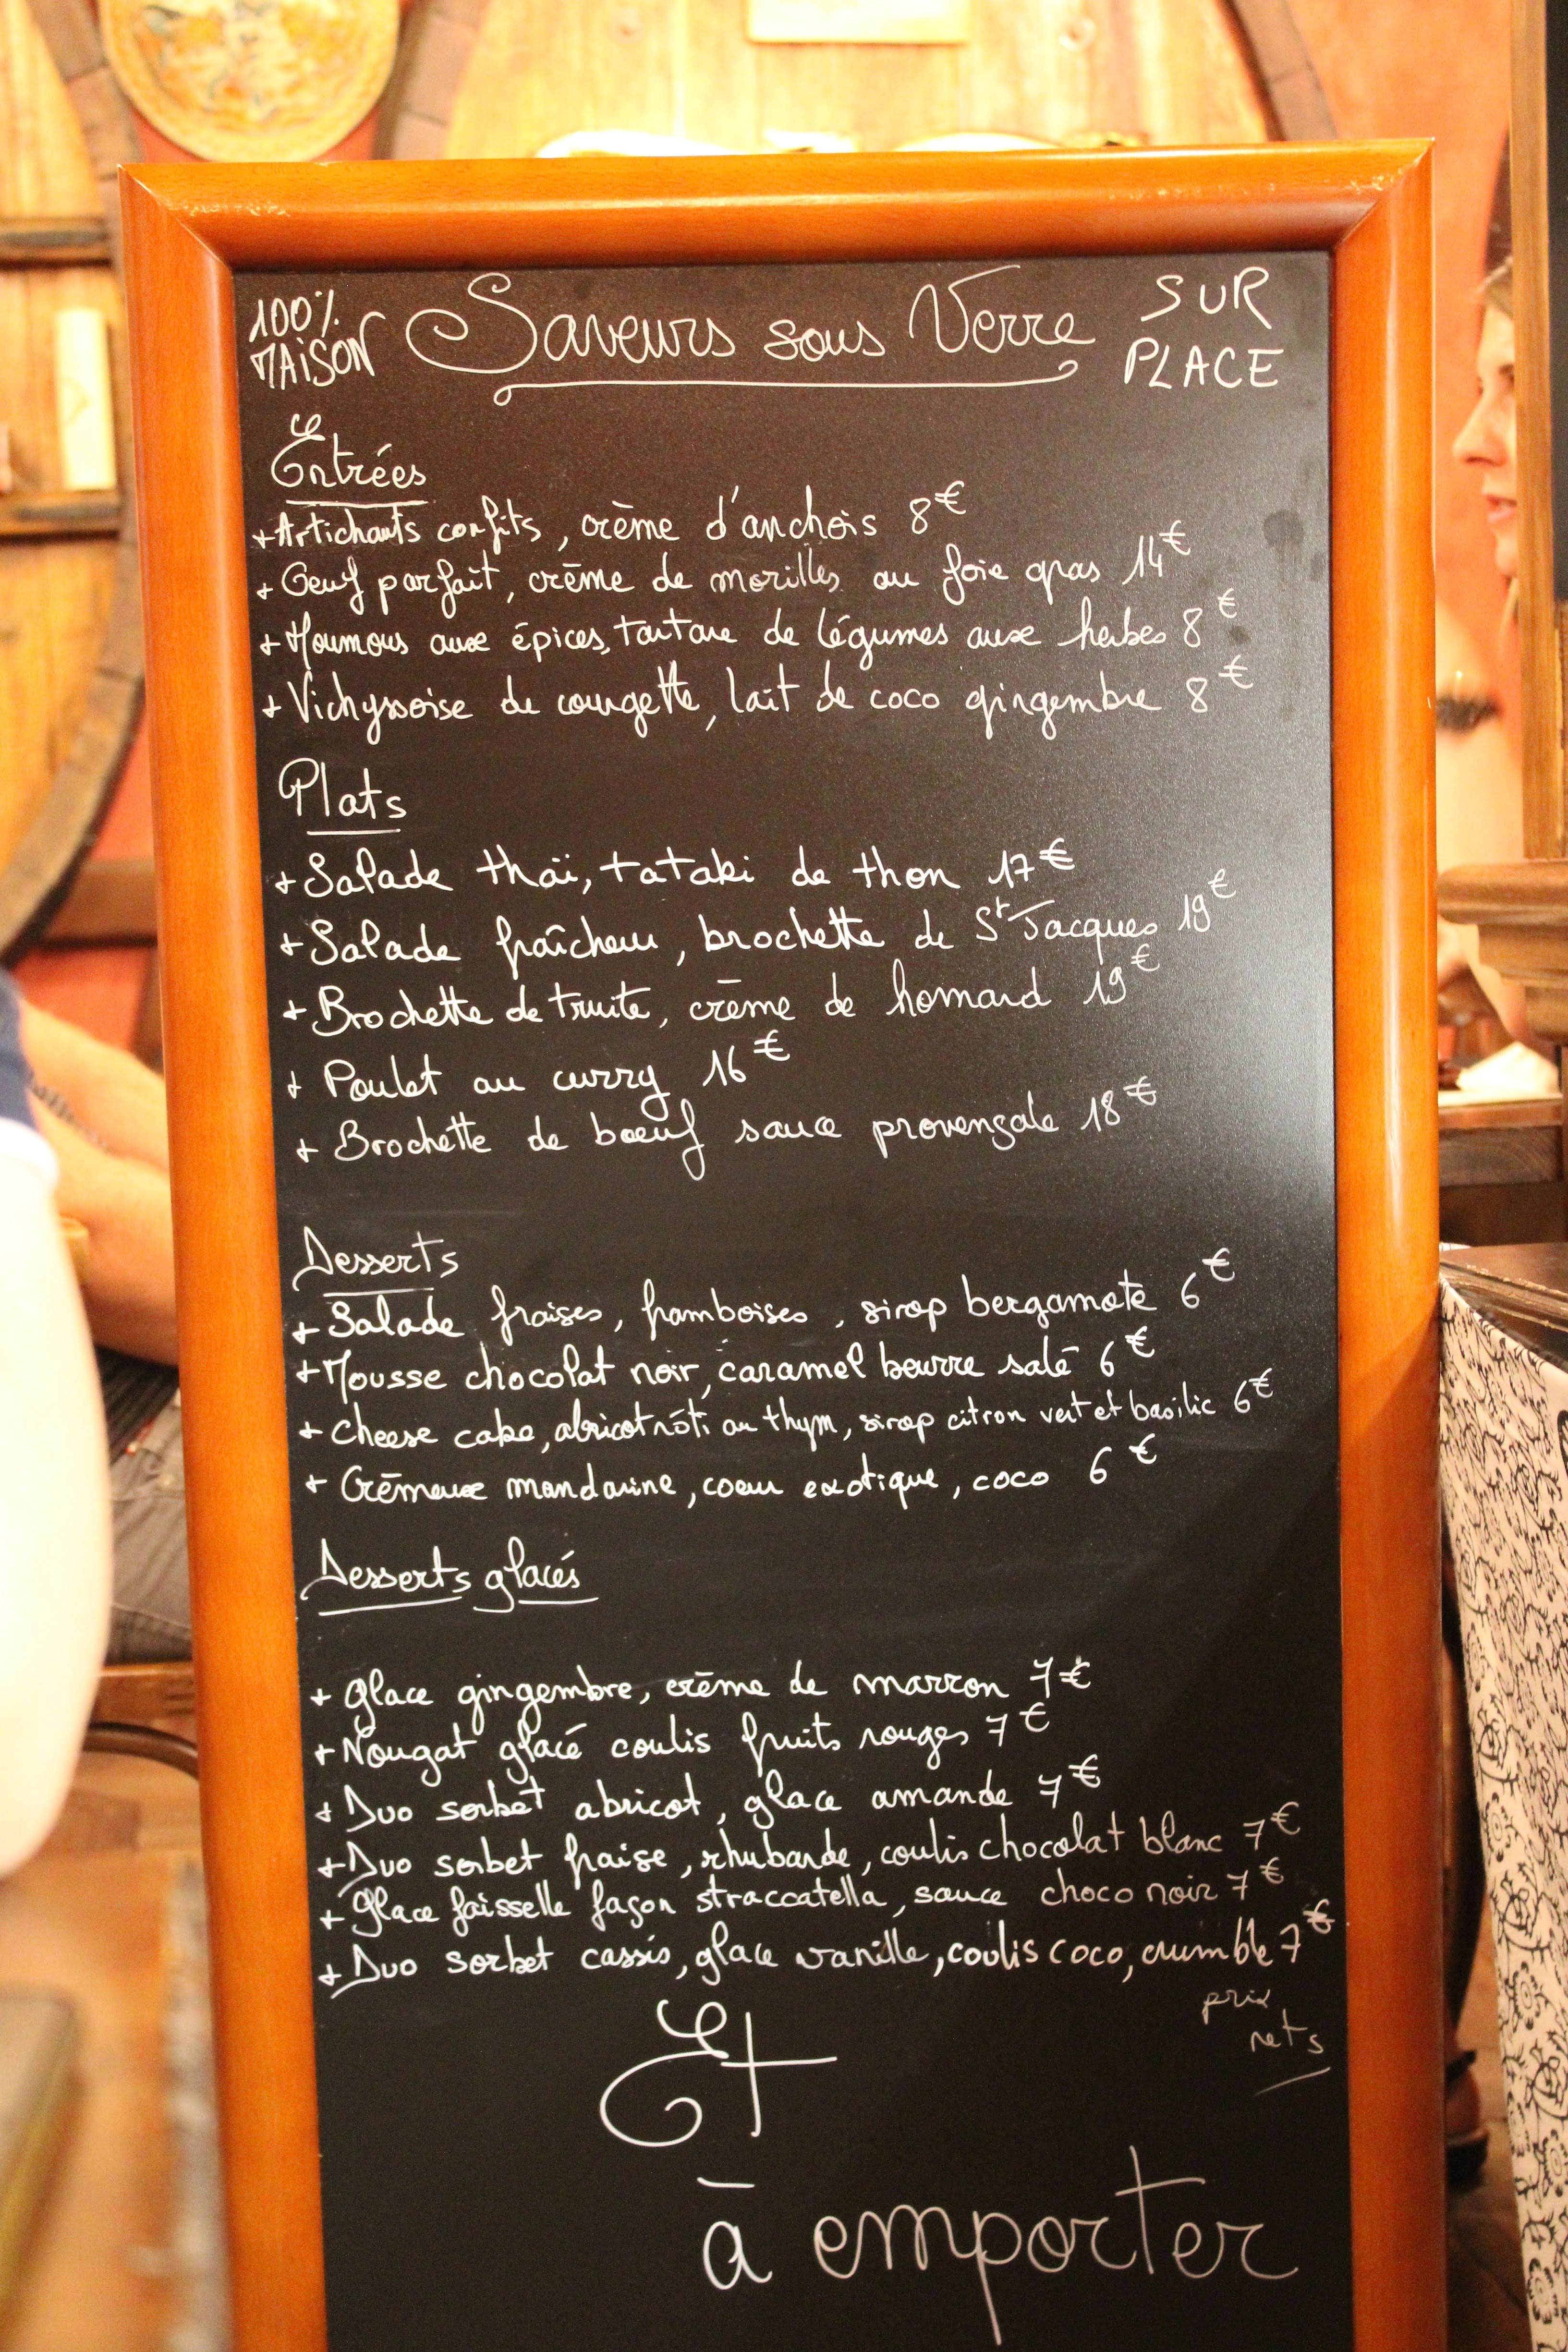 100% MAISON
Saveurs sous Verre
SUR PLACE
Entrées
+Artichauts confits, crème d'anchois 8€
+ Oeuf parfait, crème de morilles au foie gras 14€
+ Houmous aux épices, tartare de légumes aux herbes 8€
+ Vichyssoise de courgette, lait de coco gingembre 8€
Plats
+ Salade thaï, tataki de thon 17€
+ Salade fraîcheur, brochette de St Jacques 19€
+ Brochette de truite, crème de homard 19€
+ Poulet au curry 16€
+ Brochette de boeuf sauce provençale 18€
Desserts
+ Salade fraises, framboises, sirop bergamote 6€
+ Mousse chocolat noir, caramel beurre salé 6€
+ Cheese cake, abricot rôti au thym, sirop citron vert et basilic 6€
+ Crémeux mandarine, coeur exotique, coco 6€
Desserts glacés
+ Glace gingembre, crème de marron 7€
+ Nougat glacé coulis fruits rouges 7€
+ Duo sorbet abricot, glace amande 7€
+ Duo sorbet fraise, rhubarbe, coulis chocolat blanc 7€
+ Glace faisselle façon straccatella, sauce choco noir 7€
+ Duo sorbet cassis, glace vanille, coulis coco, crumble 7€
prix
nets
Et
à emporter